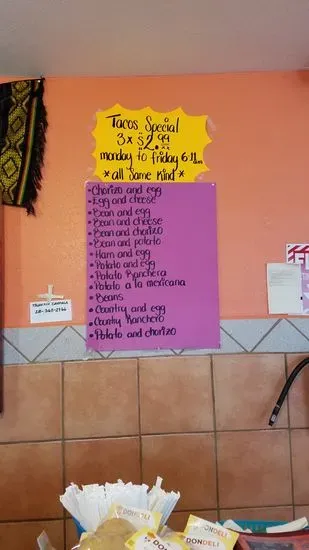 Tacos Special
3 x $2.99
monday to friday 6-11am
*all Same Kind*
•Chorizo and egg
•Egg and cheese
•Bean and egg
•Bean and cheese
•Bean and chorizo
•Bean and potato
•Ham and egg
•Potato and egg
•Potato Ranchera
•Potato a la mexicana
•Beans
•Country and egg
•Country Ranchero
•Potato and chorizo
DONDELI
DONDELI